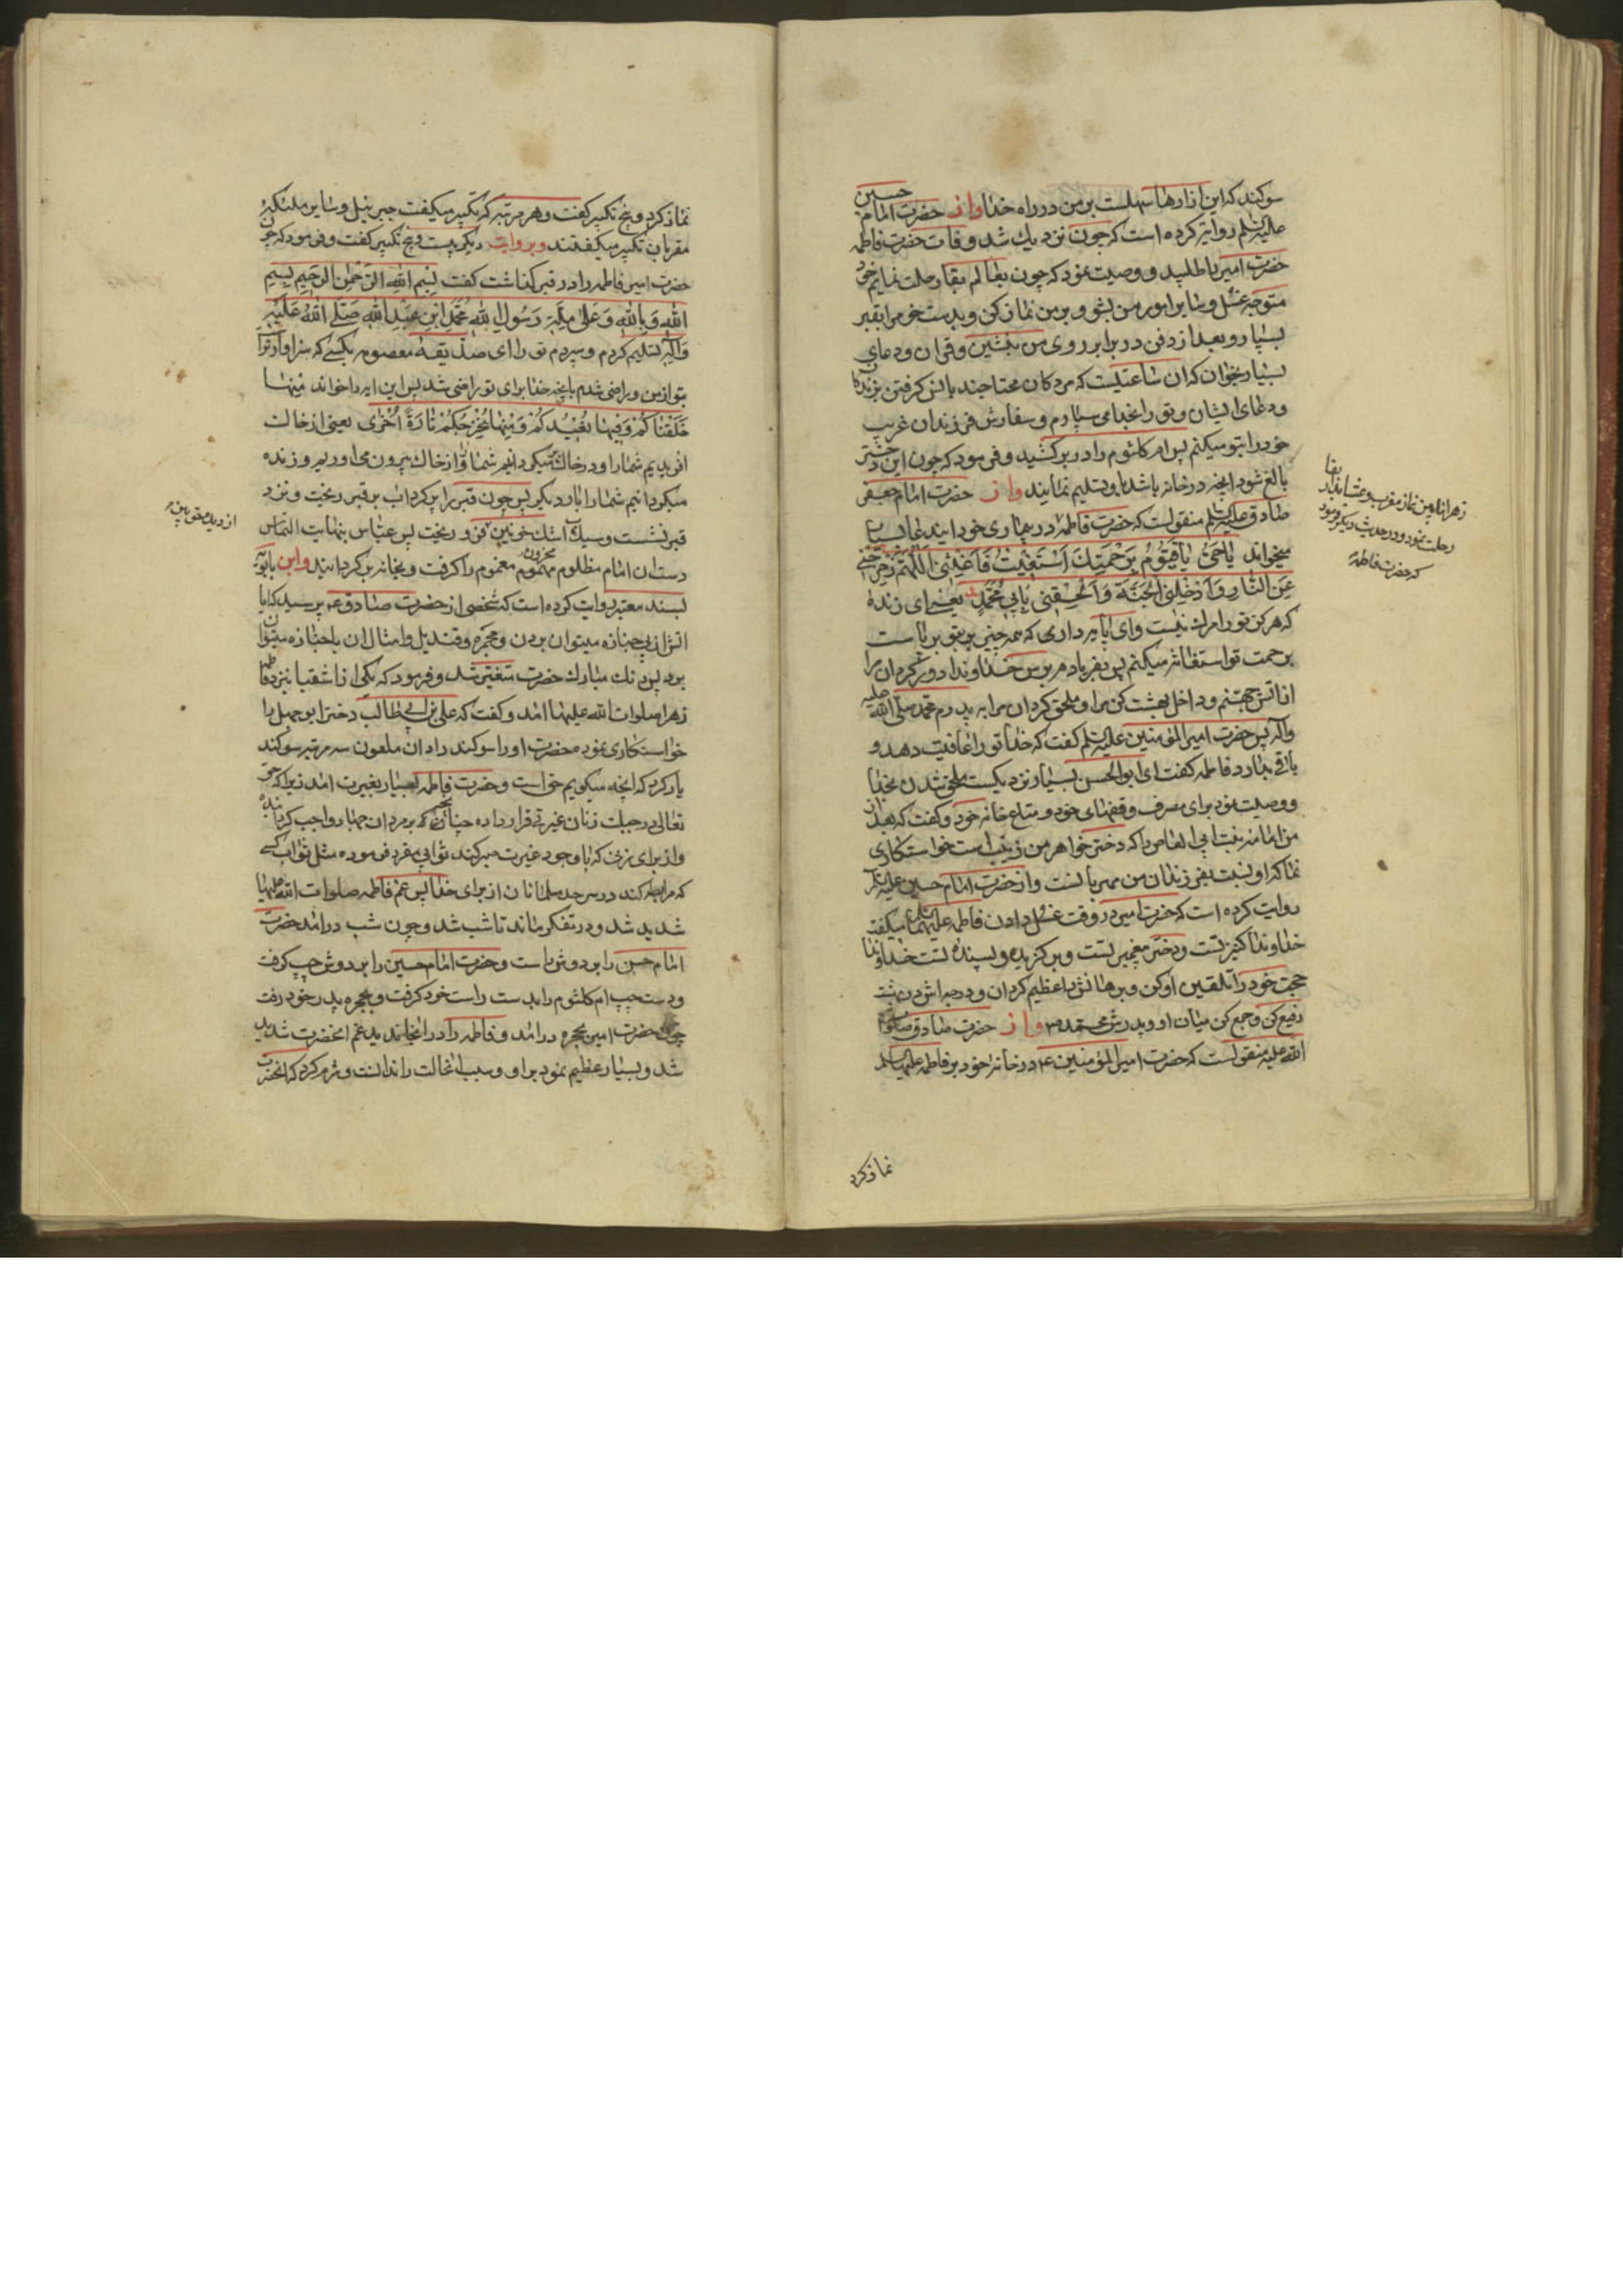 سوکند که این ازارها سهلست بر من در راه خدا واز حضرت امام حسین
علیه السلم روایت کرده است که چون نزدیک شد وفات حضرت فاطمه
حضرت امیر را طلبید و وصیت نمود که چون بعالم بقا رحلت نمایم خود
متوجه غسل و سایر امور من بشو و بر من نماز کن و بدست خود مرا بقبر
بسپار و بعد از دفن در برابر روی من بنشین وقران ودعای
بسیار بخوان که ان ساعتیست که مردکان محتاجند بانس کرفتن بزندکان
ودعای ایشان وتو را بخدا می سپارم وسفارش فرزندان غریب
خود را بتو میکنم پس ام کلثوم را در بر کشید وفرمود که چون این دختر
بالغ شود انچه در خانه باشد باو تسلیم نمایند واز حضرت امام جعفر
صادق علیه السلم منقولست که حضرت فاطمه در بیماری خود ایندعا بسیار
میخواند یا حَیُّ یا قَیُّومُ بِرَحْمَتِكَ اَسْتَغیثُ فَاَغِثْنی اَللّهُمَّ زَحْزِحْنی
عَنِ النّارِ وَاَدْخِلْنِی الْجَنَّةَ وَاَلْحِقْنی بِاَبی مُحَمَّدٍ یعنی ای زنده
که هرکز تو را مرك نیست وای پاینده که همه چیز بتو برپاست
برحمت تو استغاثه میکنم پس بفریادم برس خداوندا دور کردان مرا
از اتش جهنم وداخل بهشت کن مرا وملحق کردان مرا به پدرم محمد صلی الله علیه
واله پس حضرت امیرالمؤمنین علیه السلم کفت که خدا تو را عافیت دهد و
باقی بدارد فاطمه کفت ای ابوالحسن بسیار نزدیکست ملحق شدن بخدا
ووصیت نمود برای مصرف وقفهای خود ومتاع خانه خود وکفت که بعد از
من امامه بنت ابی العاص را که دختر خواهر من زینب است خواستکاری
نما که او نسبت بفرزندان من مهربانست واز حضرت امام حسین علیه السلم
روایت کرده است که حضرت امیر در وقت غسل دادن فاطمه علیهما السلم میکفت
خداوندا کنیز تست ودختر پیغمبر تست وبرکزیده وپسندیده تست خداوندا
حجت خود را تلقین او کن وبرهانش را عظیم کردان ودرجه اش در بهشت
رفیع کن وجمع کن میان او وپدرش محمد واز حضرت صادق صلوات
الله علیه منقولست که حضرت امیرالمؤمنین در خانه خود بر فاطمه علیها السلم
زهرا ما بین نماز مغرب وعشا بدار بقا
رحلت نمود ودر حدیث دیکر فرمود
که حضرت فاطمه
نماز کرد
نماز کرد وپنج تکبیر کفت وهر مرتبه که تکبیر میکفت جبرئیل وسایر ملئکه
مقربان تکبیر میکفتند وبروایت دیکر بیست وپنج تکبیر کفت وفرمود که چون
حضرت امیر فاطمه را در قبر کذاشت کفت بِسْمِ اللهِ الرَّحْمنِ الرَّحیمِ بِسْمِ
اللهِ وَبِاللهِ وَعَلی مِلَّةِ رَسُولِ اللهِ مُحَمَّدِ ابْنِ عَبْدِ اللهِ صَلَّی اللهُ عَلَیْهِ
وَآلِهِ تسلیم کردم وسپردم تو را ای صدیقه معصومه بکسی که سزاوارتر است
بتو از من وراضی شدم بانچه خدا برای تو راضی شد پس این ایه را خواند مِنْها
خَلَقْناکُمْ وَفیها نُعیدُکُمْ وَمِنْها نُخْرِجُکُمْ تارَةً اُخْری یعنی از خاك
افریدیم شما را ودر خاك برمیکردانیم شما را واز خاك بیرون می اوریم وزنده
میکردانیم شما را بار دیکر پس چون قبر را پر کرد اب بر قبر ریخت ونزد
قبر نشست وسیلاب اشك خونین فرو ریخت پس عباس بنهایت التماس
دست ان امام مظلوم مهموم محزون مغموم را کرفت وبخانه برکردانید وابن بابویه
بسند معتبر روایت کرده است که شخصی از حضرت صادق پرسید که ایا
اتش از پی جنازه میتوان بردن ومجمره وقندیل وامثال ان با جنازه میتوان
برد پس رنك مبارك حضرت متغیر شد وفرمود که یکی از اشقیا نزد فاطمه
زهرا صلوات الله علیها امد وکفت که علی بن ابی طالب دختر ابو جهل را
خواستکاری نموده حضرت او را سوکند داد ان ملعون سه مرتبه سوکند
یاد کرد که انچه میکویم حق است وحضرت فاطمه بسیار بغیرت امد زیرا که حق
تعالی در جبلت زنان غیرتی قرار داده چنانچه بر مردان جهاد واجب کردانیده
واز برای زنی که با وجود غیرت صبر کند ثوابی مقرر فرموده مثل ثواب کسی
که مرابطه کند در سرحد مسلمانان از برای خدا پس غم فاطمه صلوات الله علیها
شدید شد ودر تفکر ماند تا شب شد وچون شب درامد حضرت
امام حسن را بر دوش راست وحضرت امام حسین را بر دوش چپ کرفت
ودست چپ ام کلثوم را بدست راست خود کرفت وبحجره پدر خود رفت
چون حضرت امیر بحجره درامد وفاطمه را در انجا ندید غم انحضرت شدید
شد وبسیار عظیم نمود بر او وسبب انحالت را ندانست وشرم کرد که انحضرت